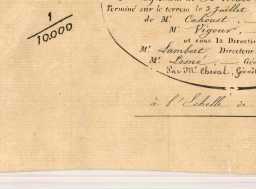 1
10.000
Terminé sur le terrein le 3 Juillet
de Mr. Cahouet.
Mr. Vigour,
et sous la Directi
Mr. Lambert Directeur
Mr. Lesne Gé
Par Mr. Cheval, Géomè
à l'Echelle de